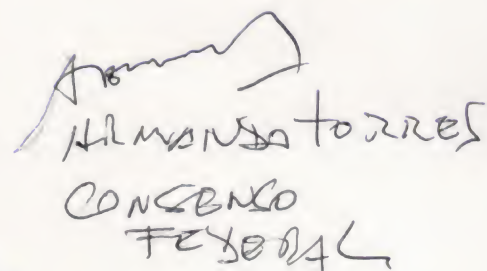 ARMANDO TORRES
CONSENSO
FEDERAL